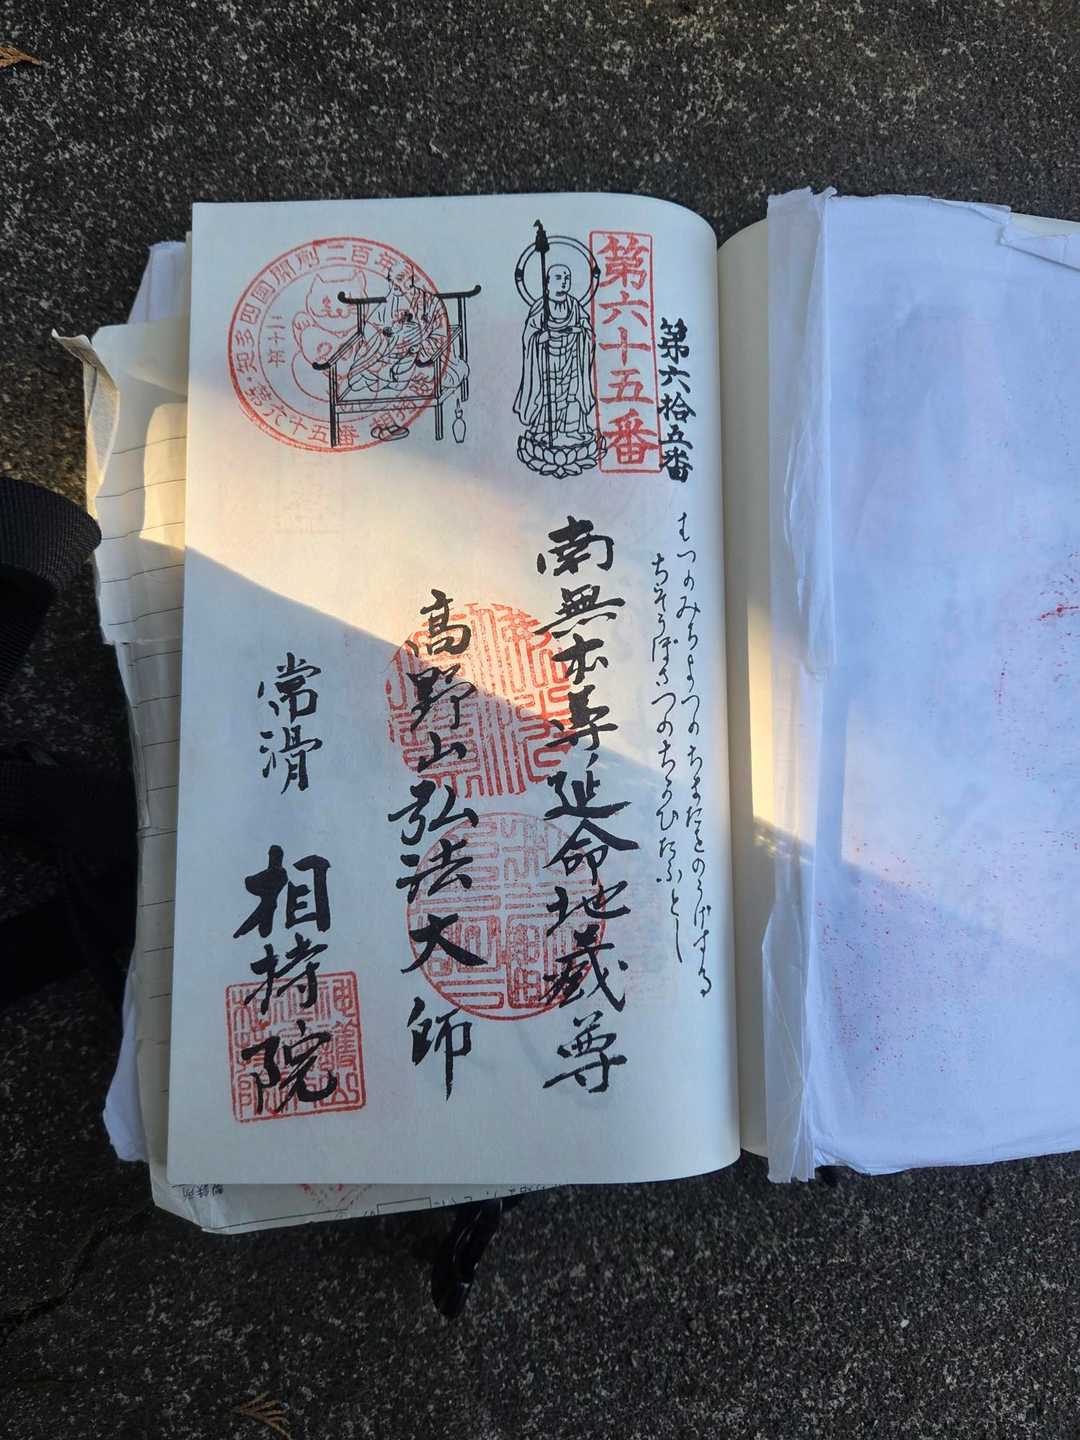 第六拾五番
第六十五番
むつのみちよつのちまたとのうげする
ちぞうぼさつのちかひたふとし
南無本尊延命地蔵尊
高野山弘法大師
常滑
相持院
知多四國開創二百年
二十年
第六十五番